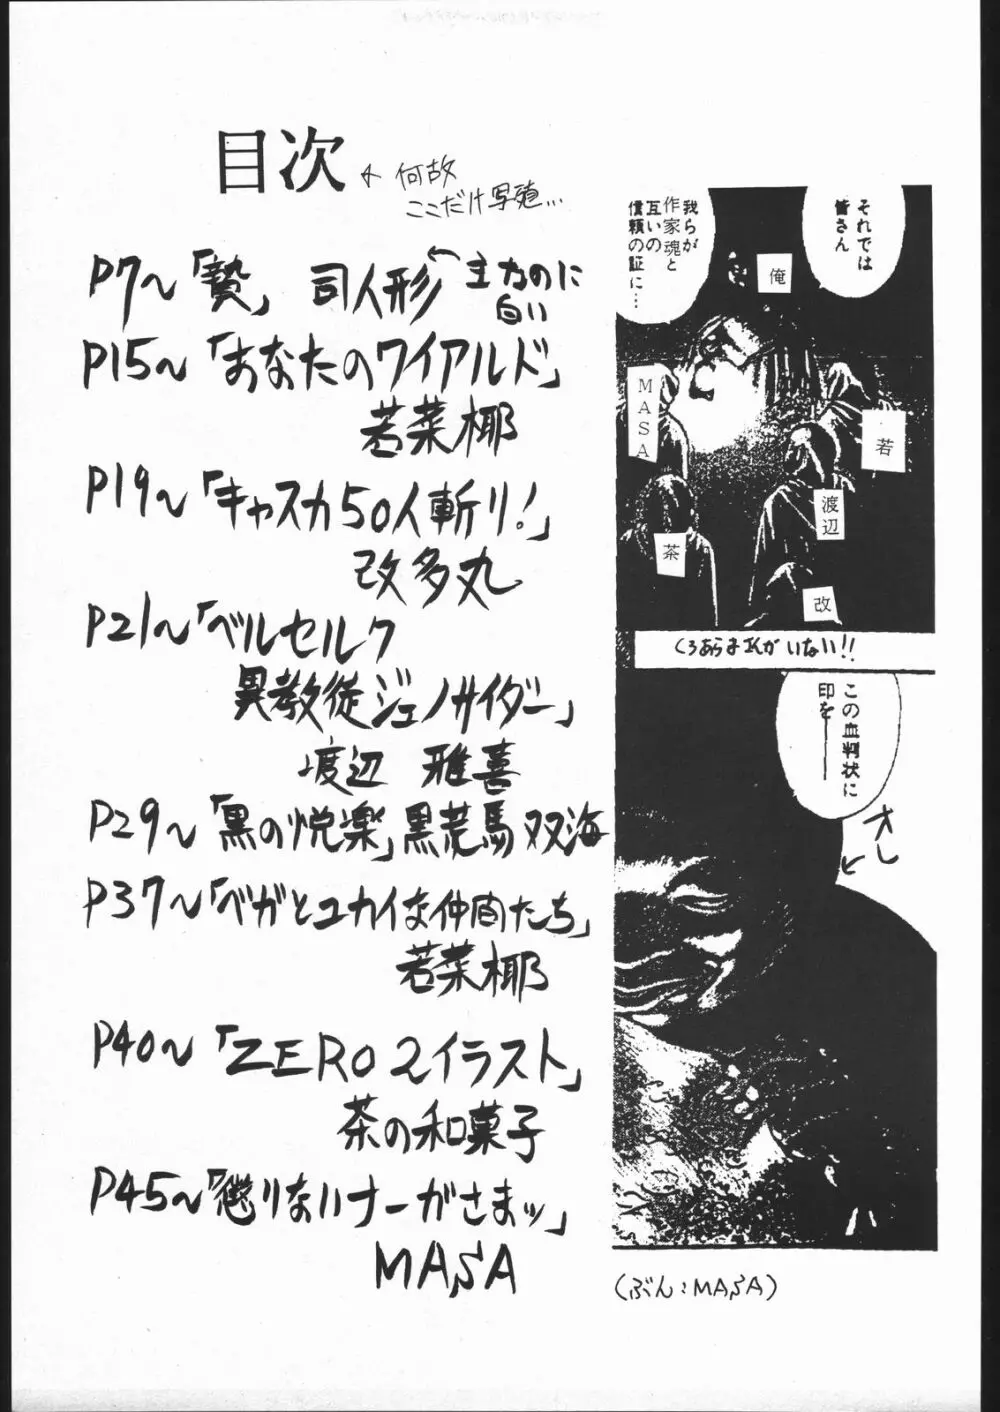 目次
←何故
ここだけ写植…
P7〜「贄」 司人形 ←主なのに
白い
P15〜「あなたのワイアルド」
若菜椰
P19〜「キャスカ50人斬り!」
改多丸
P21〜「ベルセルク
異教徒ジェノサイダー」
渡辺 雅喜
P29〜「黒の悦楽」黒荒馬双海
P37〜「ベガとユカイな仲間たち」
若菜椰
P40〜「ZERO2イラスト」
茶の和菓子
P45〜「懲りないナーがさまッ」
MASA
それでは
皆さん
我らが
作家魂と
互いの
信頼の証に…
俺
MASA
若
渡辺
茶
改
くろあらまえんがいない!!
この血判状に
印を――
オレ
(ぶん:MASA)